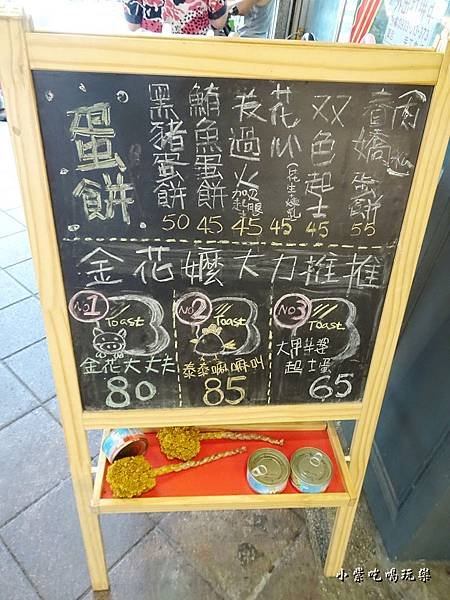 蛋餅
黑豬蛋餅 50
鮪魚蛋餅 45
過火 45
花心(花生+煉乳) 45
双色起士 45
蛋餅 55
金花嬤大力推推
No1 Toast
金花大丈夫
80
No2 Toast
泰泰嘛嘛叫
85
No3 Toast
大甲芋婆
起士蛋
65
小紫吃喝玩樂